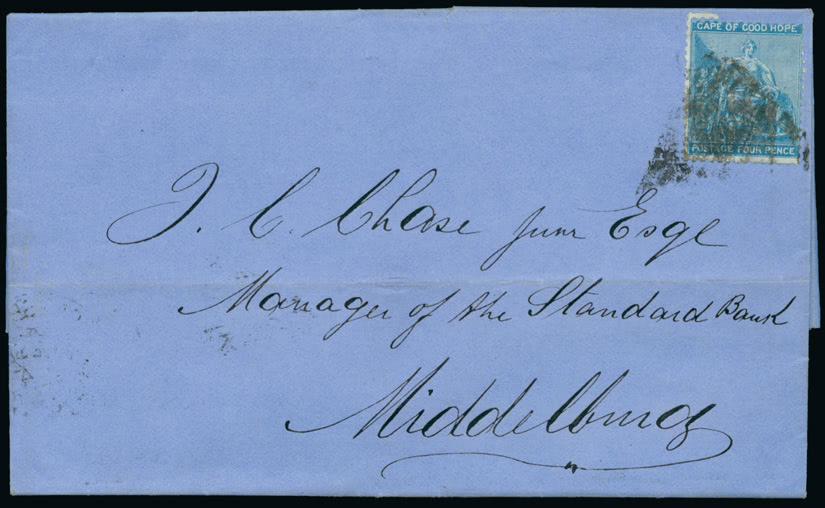 CAPE OF GOOD HOPE
POSTAGE FOUR PENCE
J. C. Chase Junr Esqe
Manager of the Standard Bank
Middelburg